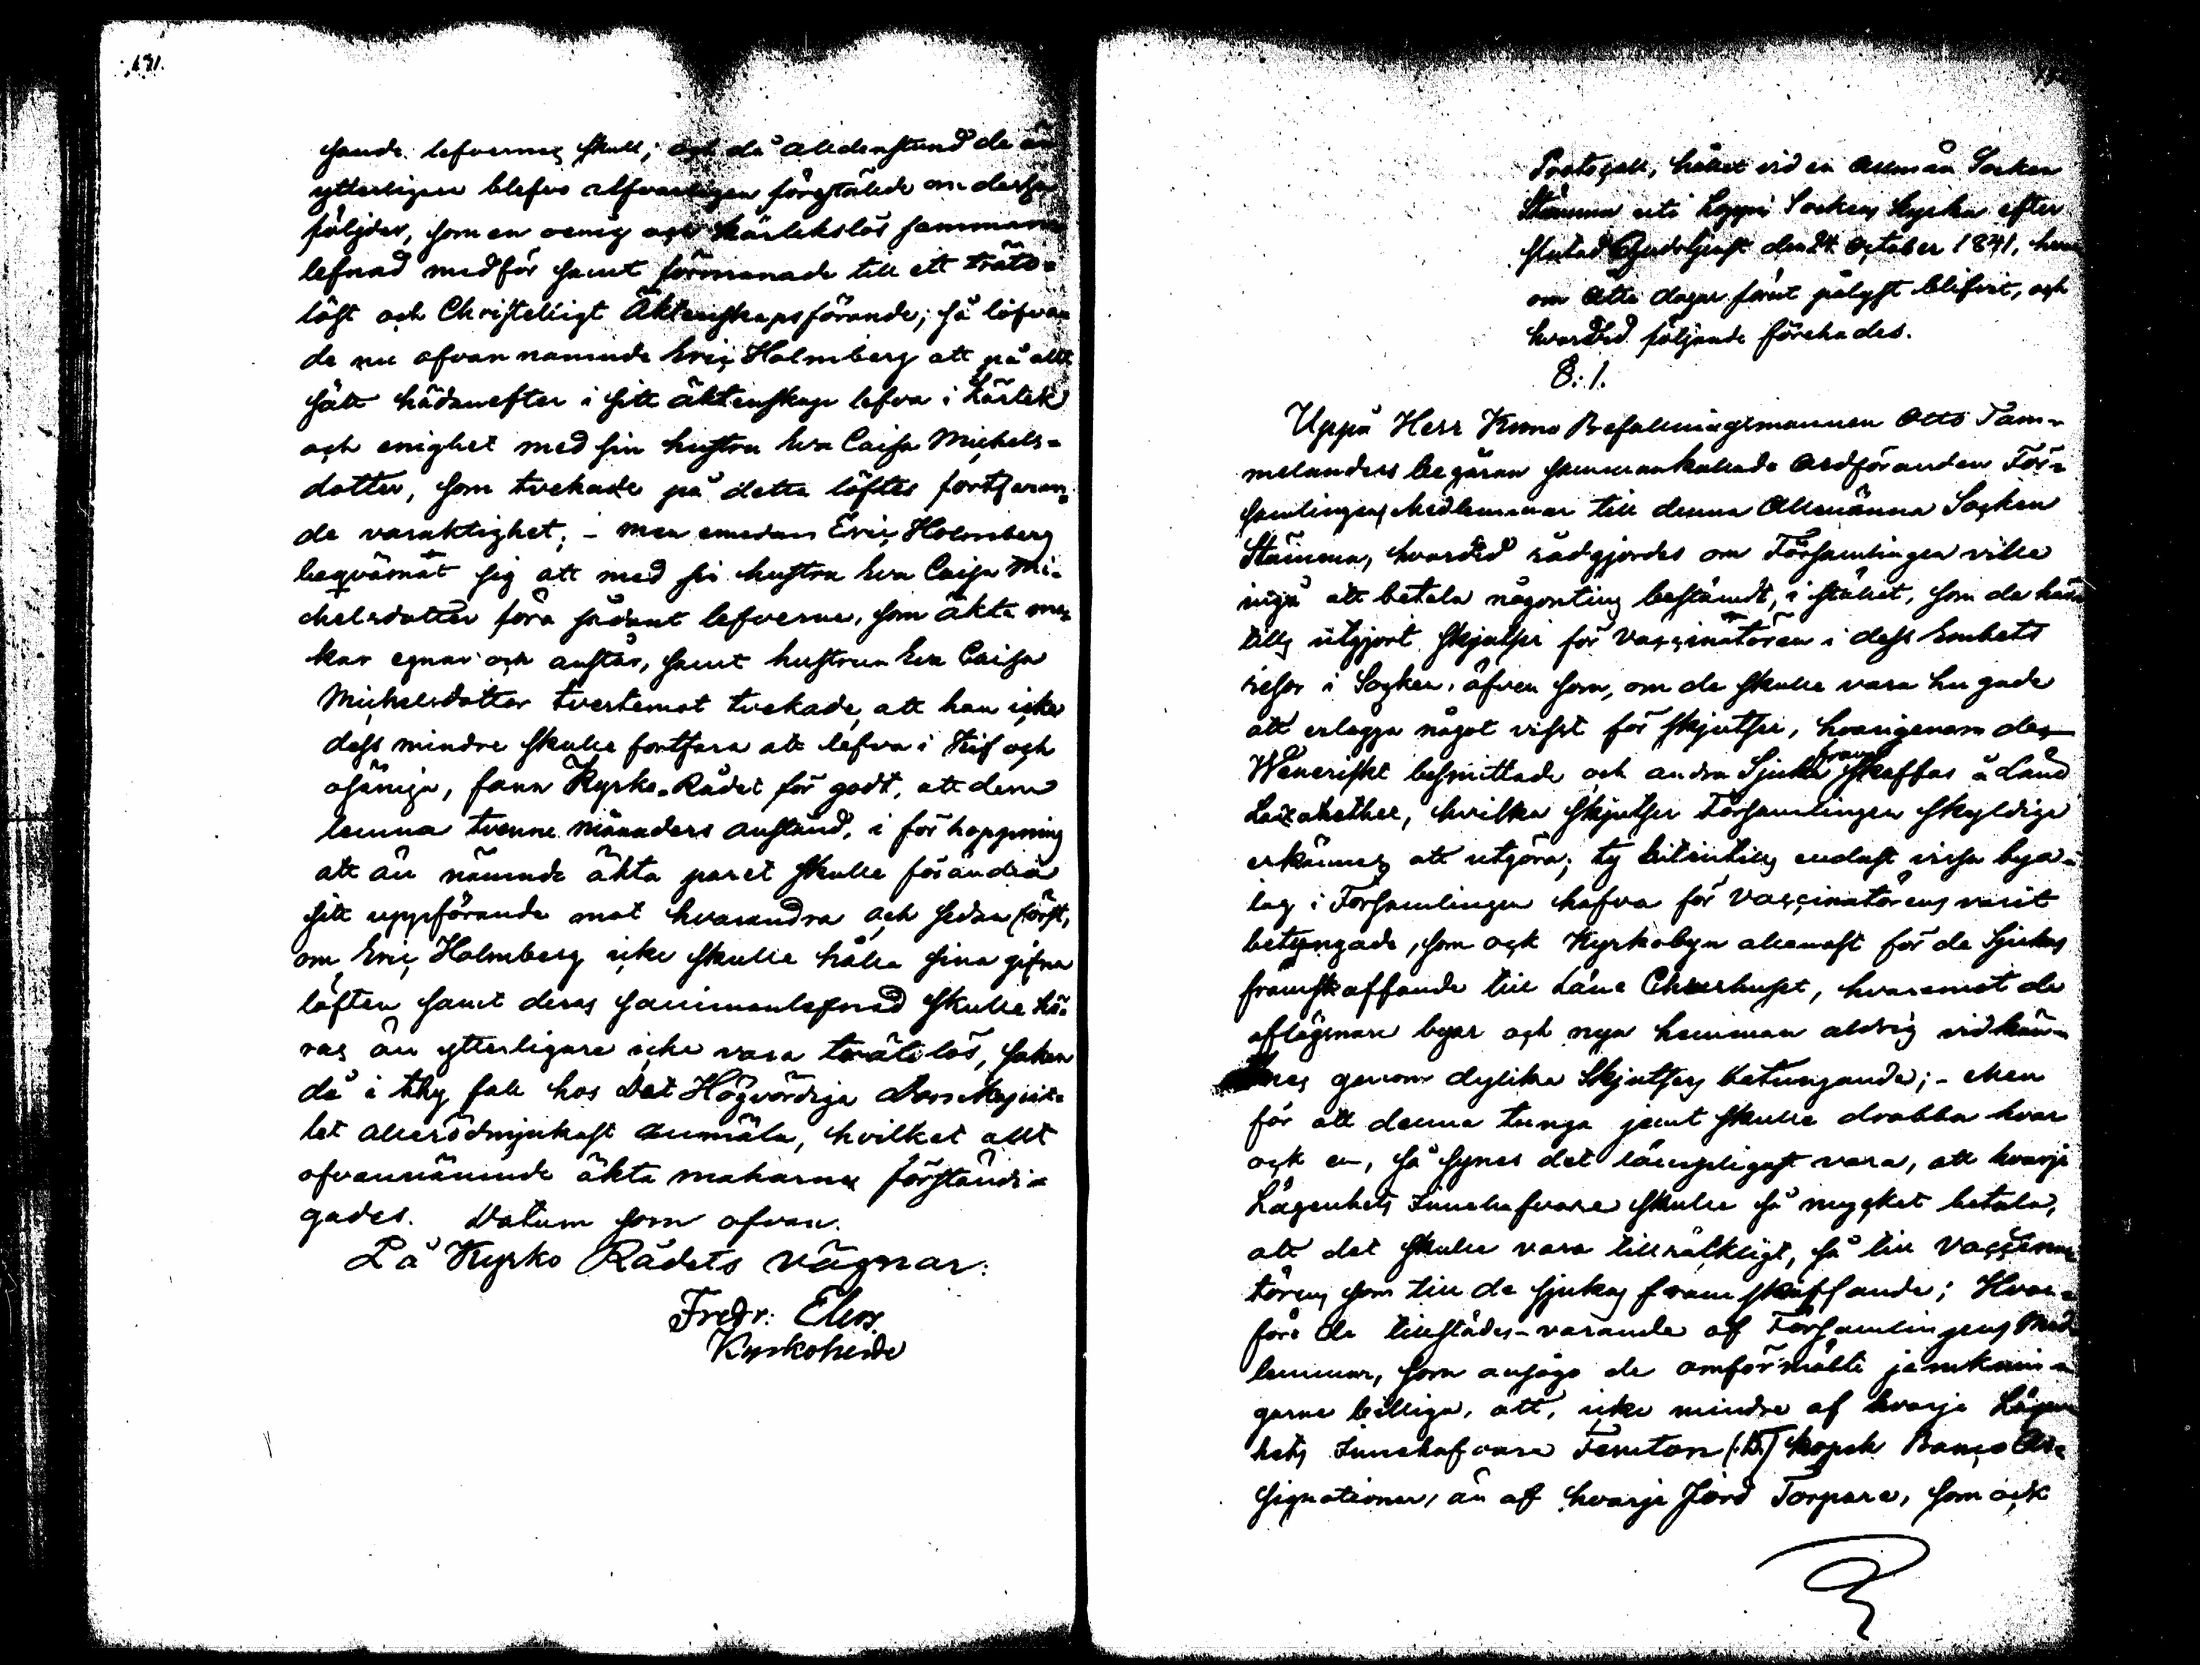 131.
sande lefvernes skull; och då alldenstund de än
ytterligare blefvo alfvarligen föreståldte om dessa
följder, som en oenig och kärlekslös samman-
lefnad medför samt förmanade till ett träto-
löst och Christeligit Äktenskapsförande; så lofva-
de nu ofvan namnde Eric Holmberg att på allt
sätt hädanefter i sitt äktenskap lefva i kärlek
och enighet med sin hustru Eva Caisa Michels-
dotter, som tvekade på detta löftes fortfaran-
de varaktighet; - men emedan Eric Holmberg
beqvämat sig att med sin hustru Eva Caisa Mi-
chelsdotter föra sådant lefverne, som äkta ma-
kar egnar och anstår, samt hustrun Eva Caisa
Michelsdotter tvertemot tvekade, att han icke
dess mindre skulle fortfara att lefva i kif och
osämja, fann Kyrko-Rådet för godt, att dem
lemna tvenne månaders anstånd, i förhoppning
att än nämnde äkta paret skulle förändra
sitt uppförande mot hvarandra och sedan först,
om Eric Holmberg icke skulle hålla sina gifna
löften samt deras sammanlefnad skulle hö-
ras än ytterligare icke vara trätelös, saken
då i thy fall hos Det Högvördiga Domkapit-
let allerödmjukast anmäla, hvilket allt
ofvannämnde äkta makarna förständi-
gades. Datum som ofvan.
På Kyrko Rådets vägnar:
Fredr: Elers
Kyrkoherde
Protocoll, hållet vid en Allmän Socken
Stämma uti Loppi Sockens Kyrka efter
slutad Gudstjenst den 24 October 1841, hvar
om åtta dagar förut pålyst blifvit, och
hvarvid följande förehades.
§: 1.
Uppå Herr Krono Befallningsmannen Otto Tam-
melanders begäran sammankallade Ordföranden För-
samlingens Medlemmar till denna Allmänna Socken
Stämma, hvarvid rådgjordes om Församlingen ville
ingå att betala någonting bestämdt, i stället, som de här-
tills utgjort skjutser för Vaccinatören i dess Embets
resor i Socken, äfven som, om de skulle vara hugade
att erlägga något visst för skjutser, hvarigenom de
Weneriskt besmittade och andra Sjuka fram skaffas å Läns
Lazarether, hvilka skjutser Församlingen skyldige
erkännes att utgöra; ty hitintills endast vissa bya-
lag i Församlingen hafva för Vaccinatörens varit
betungade, som ock Kyrkobyn allenast för de Sjukas
framskaffande till Läne Churhuset, hvaremot de
aflägsnare byar och nya hemman aldrig vidkän-
nes genom dylika Skjutsers betungande; - Men
för att denna tunga jemt skulle drabba hvar
och en, så synes det lämpligast vara, att hvarje
Lägenhets Innehafvare skulle så mycket betala,
att det skulle vara tillräckligt, så till Vaccina-
törens som till de sjukas fram skaffande; Hvar-
före de tillstädes-varande af Församlingens Med-
lemmar, som ansågo de omförmälte jemknin-
garne billiga, att, icke mindre af hvarje Lägen-
hets Innehafvare Femton (15) kopek Banco As-
signationer, än af hvarje Jord Torpare, som ock